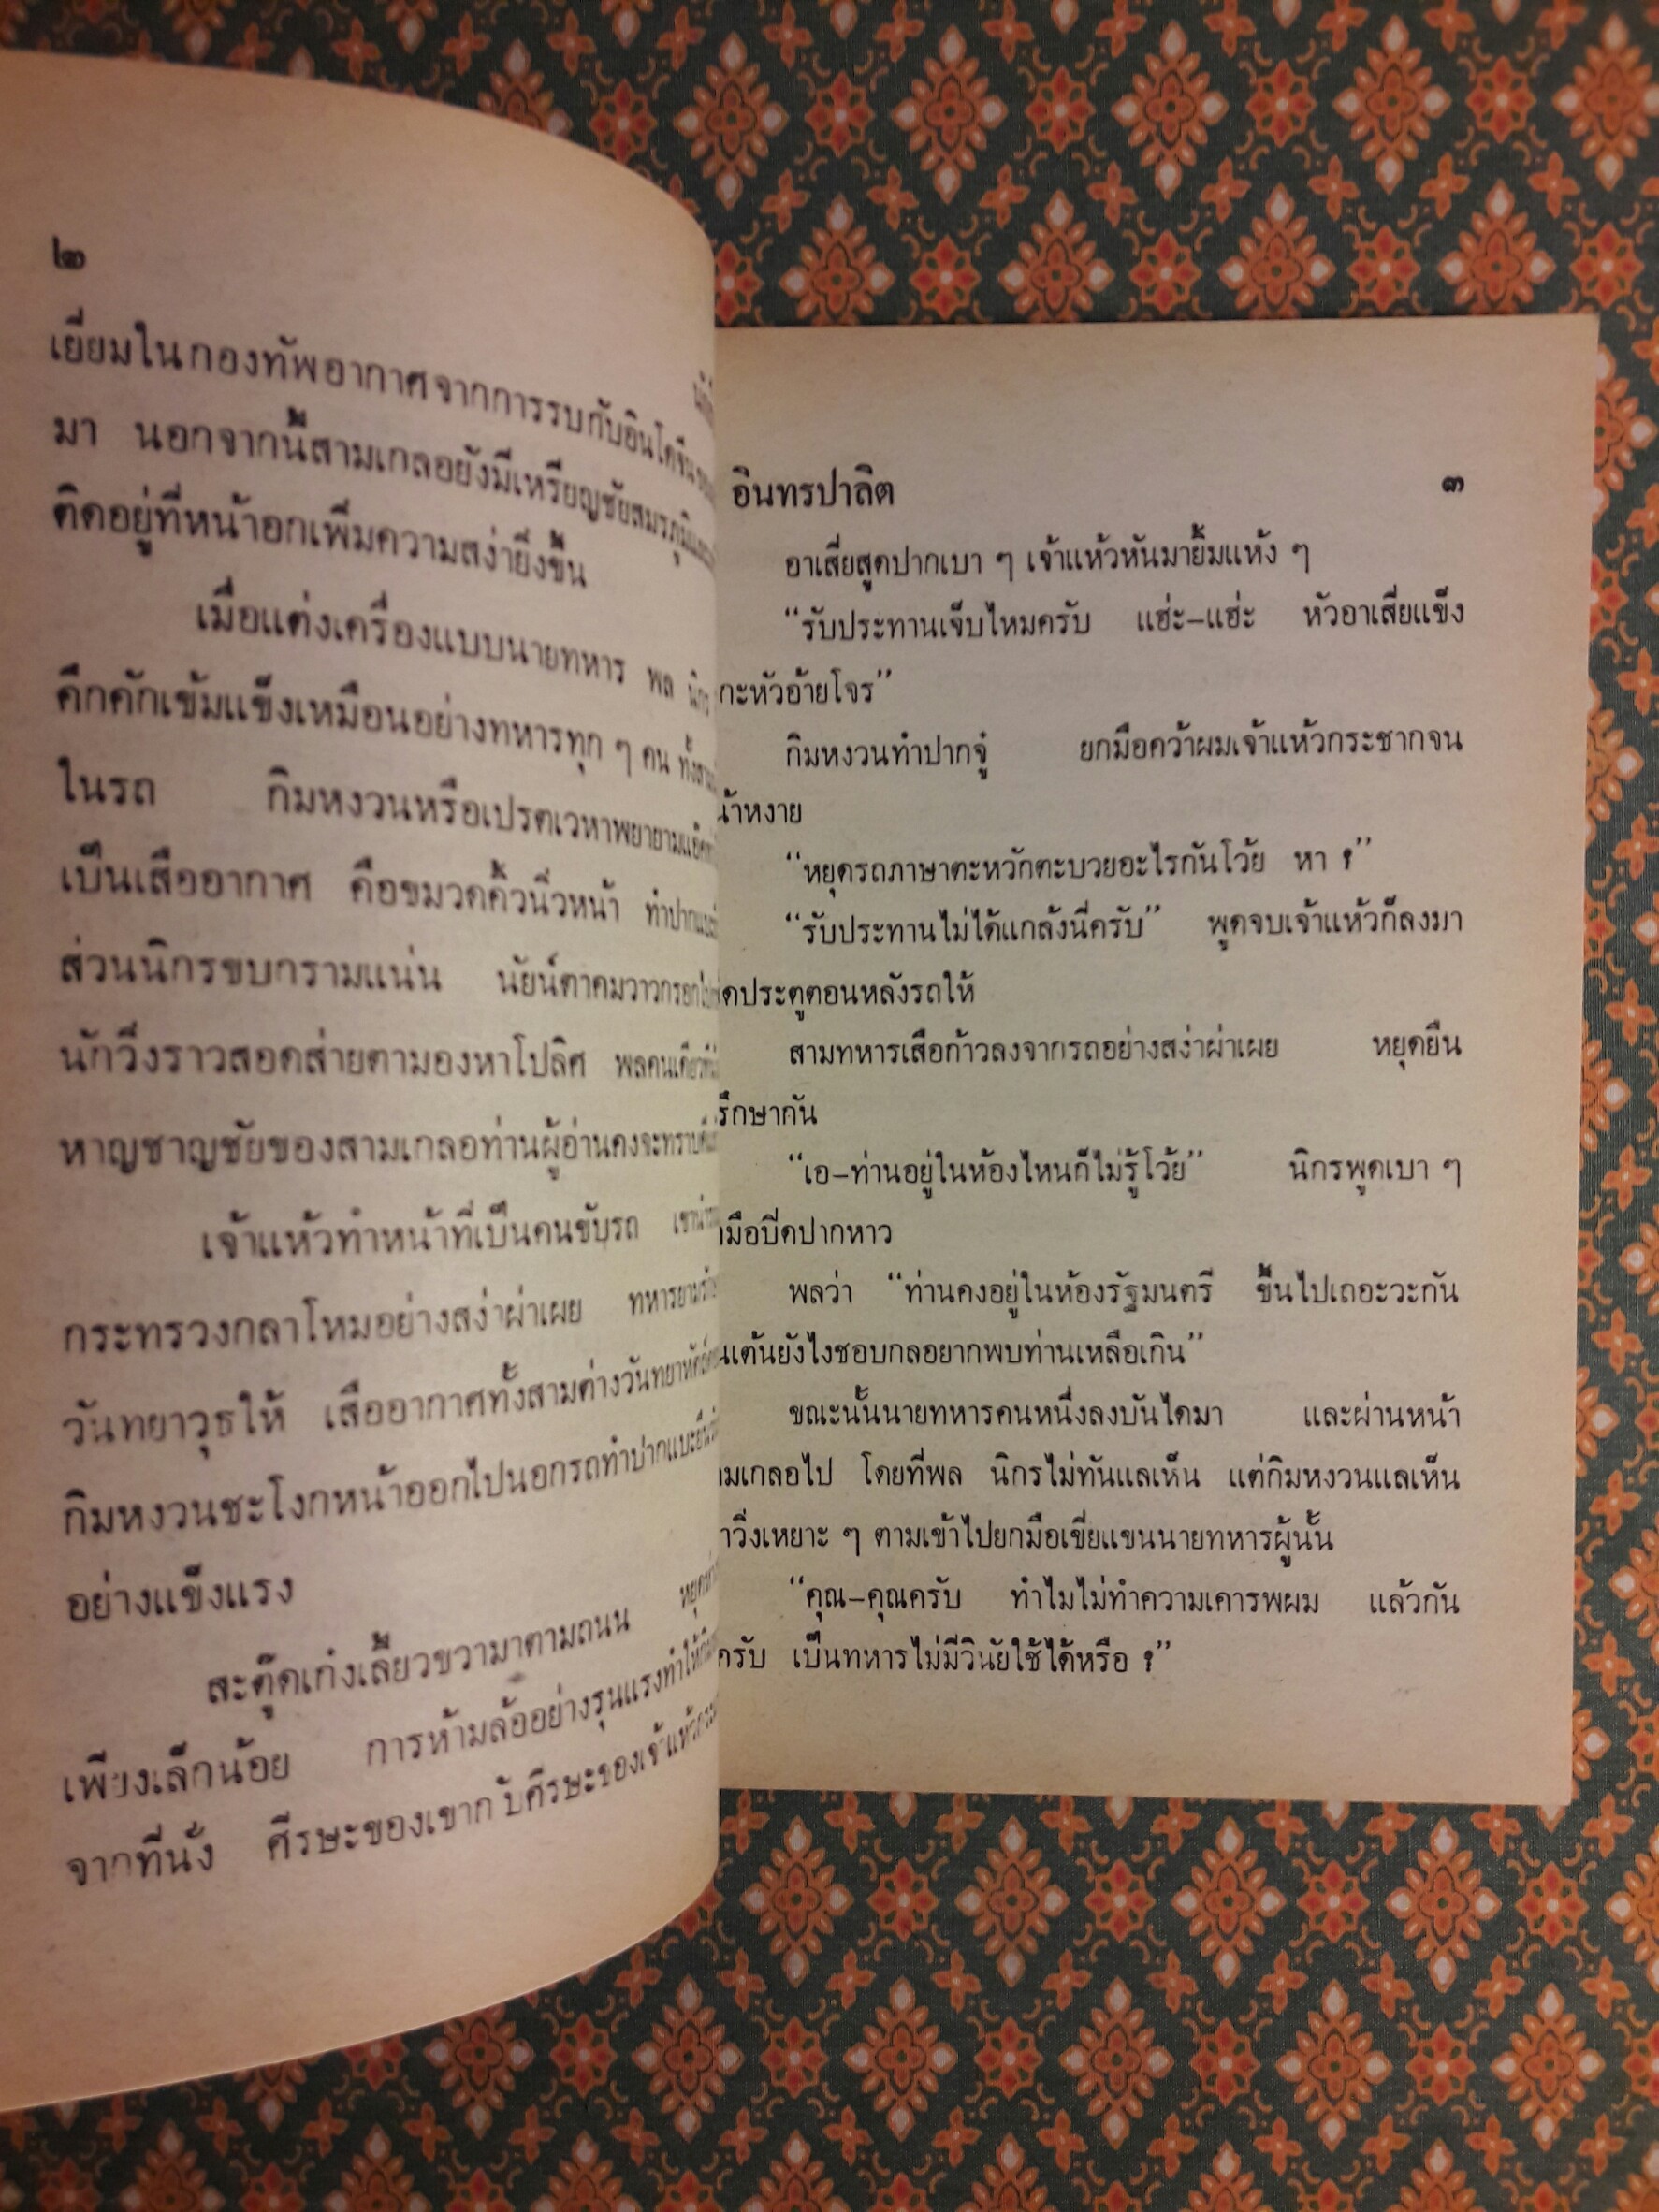 ๒
เยี่ยมในกองทัพอากาศจากการรบกับอินโดจีน
มา นอกจากนี้สามเกลอยังมีเหรียญชัยสมรภูมิ
ติดอยู่ที่หน้าอกเพิ่มความสง่ายิ่งขึ้น
เมื่อแต่งเครื่องแบบนายทหาร พล
คึกคักเข้มแข็งเหมือนอย่างทหารทุก ๆ คน
ในรถ กิมหงวนหรือเปรตเวหาพยายาม
เป็นเสืออากาศ คือขมวดคิ้วนิ่วหน้า
ส่วนนิกรขบกรามแน่น นัยน์ตาคมวาว
นักวิ่งราวสอดส่ายตามองหาโปลิศ
หาญชาญชัยของสามเกลอท่านผู้อ่านคงจะทราบ
เจ้าแห้วทำหน้าที่เป็นคนขับรถ
กระทรวงกลาโหมอย่างสง่าผ่าเผย
วันทยาวุธให้ เสืออากาศทั้งสามต่างวันทยาหัตถ์
กิมหงวนชะโงกหน้าออกไปนอกรถทำปากแบะ
อย่างแข็งแรง
สะตู๊ดเก๋งเลี้ยวขวามาตามถนน
เพียงเล็กน้อย การห้ามล้ออย่างรุนแรงทำให้
จากที่นั่ง ศีรษะของเขากับศีรษะของเจ้าแห้ว
อินทรปาลิต ๓
อาเสี่ยสูดปากเบา ๆ เจ้าแห้วหันมายิ้มแห้ง ๆ
“รับประทานเจ็บไหมครับ แฮ่ะ–แฮ่ะ หัวอาเสี่ยแข็ง
กะหัวอ้ายโจร”
กิมหงวนทำปากจู๋ ยกมือคว้าผมเจ้าแห้วกระชากจน
น้าหงาย
“หยุดรถภาษาตะหวักตะบวยอะไรกันโว้ย หา ?”
“รับประทานไม่ได้แกล้งนี่ครับ” พูดจบเจ้าแห้วก็ลงมา
ดประตูตอนหลังรถให้
สามทหารเสือก้าวลงจากรถอย่างสง่าผ่าเผย หยุดยืน
รึกษากัน
“เอ–ท่านอยู่ในห้องไหนก็ไม่รู้โว้ย” นิกรพูดเบา ๆ
มือปิดปากหาว
พลว่า “ท่านคงอยู่ในห้องรัฐมนตรี ขึ้นไปเถอะวะกัน
นเต้นยังไงชอบกลอยากพบท่านเหลือเกิน”
ขณะนั้นนายทหารคนหนึ่งลงบันไดมา และผ่านหน้า
ามเกลอไป โดยที่พล นิกรไม่ทันแลเห็น แต่กิมหงวนแลเห็น
าวิ่งเหยาะ ๆ ตามเข้าไปยกมือเขี่ยแขนนายทหารผู้นั้น
“คุณ–คุณครับ ทำไมไม่ทำความเคารพผม แล้วกัน
ครับ เป็นทหารไม่มีวินัยใช้ได้หรือ ?”